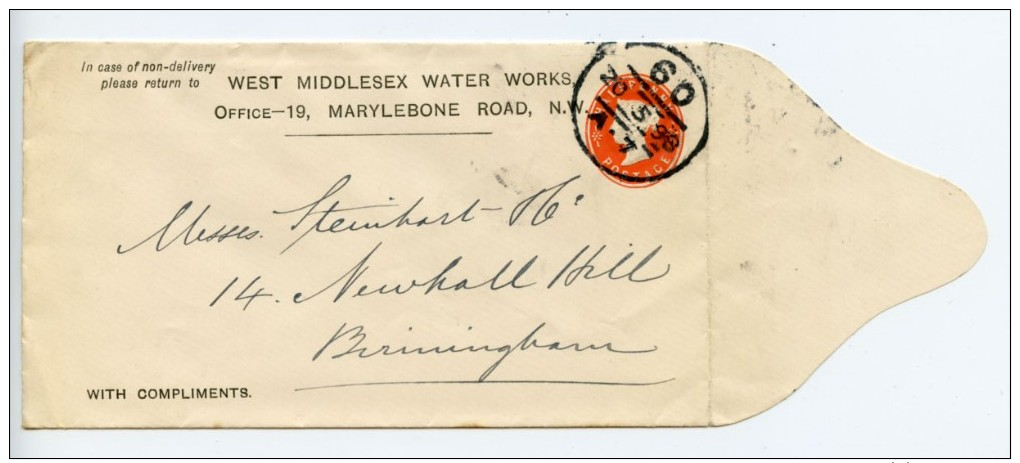 In case of non-delivery
please return to
WEST MIDDLESEX WATER WORKS,
OFFICE—19, MARYLEBONE ROAD, N.W.
60
A
NO 5
97
POSTAGE
Messrs. Steinhart
14. Newhall Hill
Birmingham
WITH COMPLIMENTS.